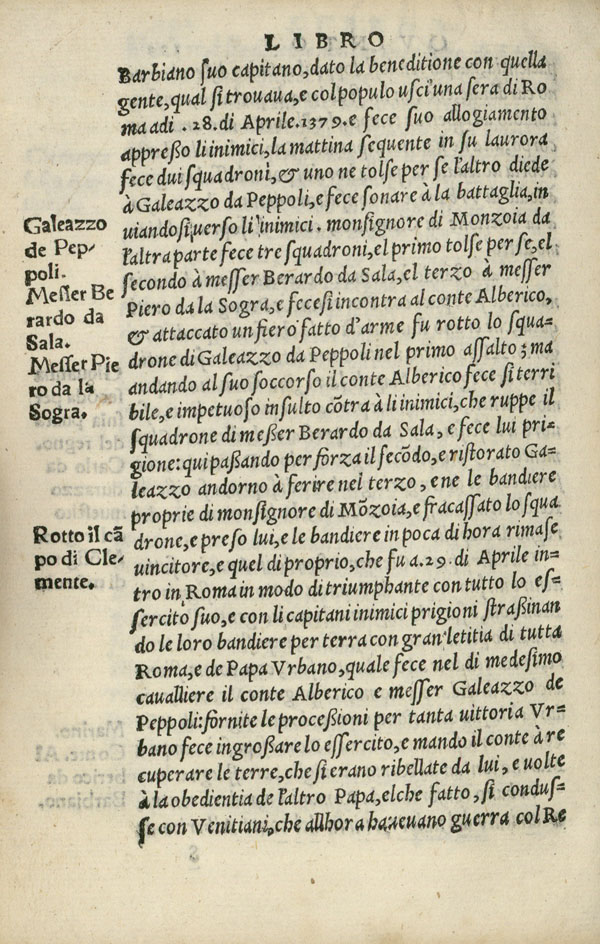 LIBRO
Barbiano ſuo capitano, dato la beneditione con quella
gente, qual ſi trouaua, e col populo uſci una ſera di Ro
ma adi . 28. di Aprile. 1379. e fece ſuo allogiamento
appreßo li inimici, la mattina ſequente in su laurora
fece dui ſquadroni, & uno ne tolſe per ſe l'altro diede
à Galeazzo da Peppoli, e fece ſonare à la battaglia, in
uiandoſi uerſo li inimici. monſignore di Monzoia da
l'altra parte fece tre ſquadroni, el primo tolſe per ſe, el
ſecondo à meſſer Berardo da Sala, el terzo à meſſer
Piero da la Sogra, e feceſi incontra al conte Alberico,
& attaccato un fiero fatto d'arme fu rotto lo ſqua-
drone di Galeazzo da Peppoli nel primo aſſalto; ma
andando al ſuo ſoccorſo il conte Alberico fece ſi terri
bile, e impetuoſo inſulto cõtra à li inimici, che ruppe il
ſquadrone di meßer Berardo da Sala, e fece lui pri-
gione: qui paßando per forza il ſecõdo, e riſtorato Ga-
leazzo andorno à ferire nel terzo, e ne le bandiere
proprie di monſignore di Mõzoia, e fracaſſato lo ſqua
drone, e preſo lui, e le bandiere in poca di hora rimaſe
uincitore, e quel di proprio, che fu a. 29. di Aprile in-
tro in Roma in modo di triumphante con tutto lo eſ-
ſercito ſuo, e con li capitani inimici prigioni ſtraßinan
do le loro bandiere per terra con gran letitia di tutta
Roma, e de Papa Vrbano, quale fece nel di medeſimo
caualliere il conte Alberico e meſſer Galeazzo de
Peppoli: fornite le proceßioni per tanta uittoria Vr-
bano fece ingroßare lo eſſercito, e mando il conte à re
cuperare le terre, che ſi erano ribellate da lui, e uolte
à la obedientia de l'altro Papa, elche fatto, ſi conduſ-
ſe con Venitiani, che allhora haueuano guerra col Re
Galeazzo
de Pep-
poli.
Meſſer Be
rardo da
Sala.
Meſſer Pie
ro da la
Sogra.
Rotto il cã
po di Cle-
mente.